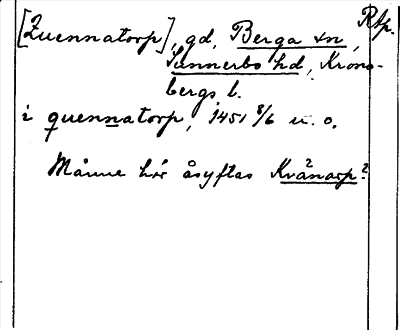 [Quennatorp], gd, Berga sn, Rtp.
Sunnerbo hd, Krono-
bergs l.
i quennatorp, 1451 8/6 u. o.
Månne här åsyftas Kvänarp?